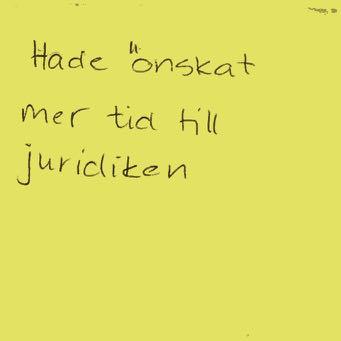 Hade önskat
mer tid till
juridiken